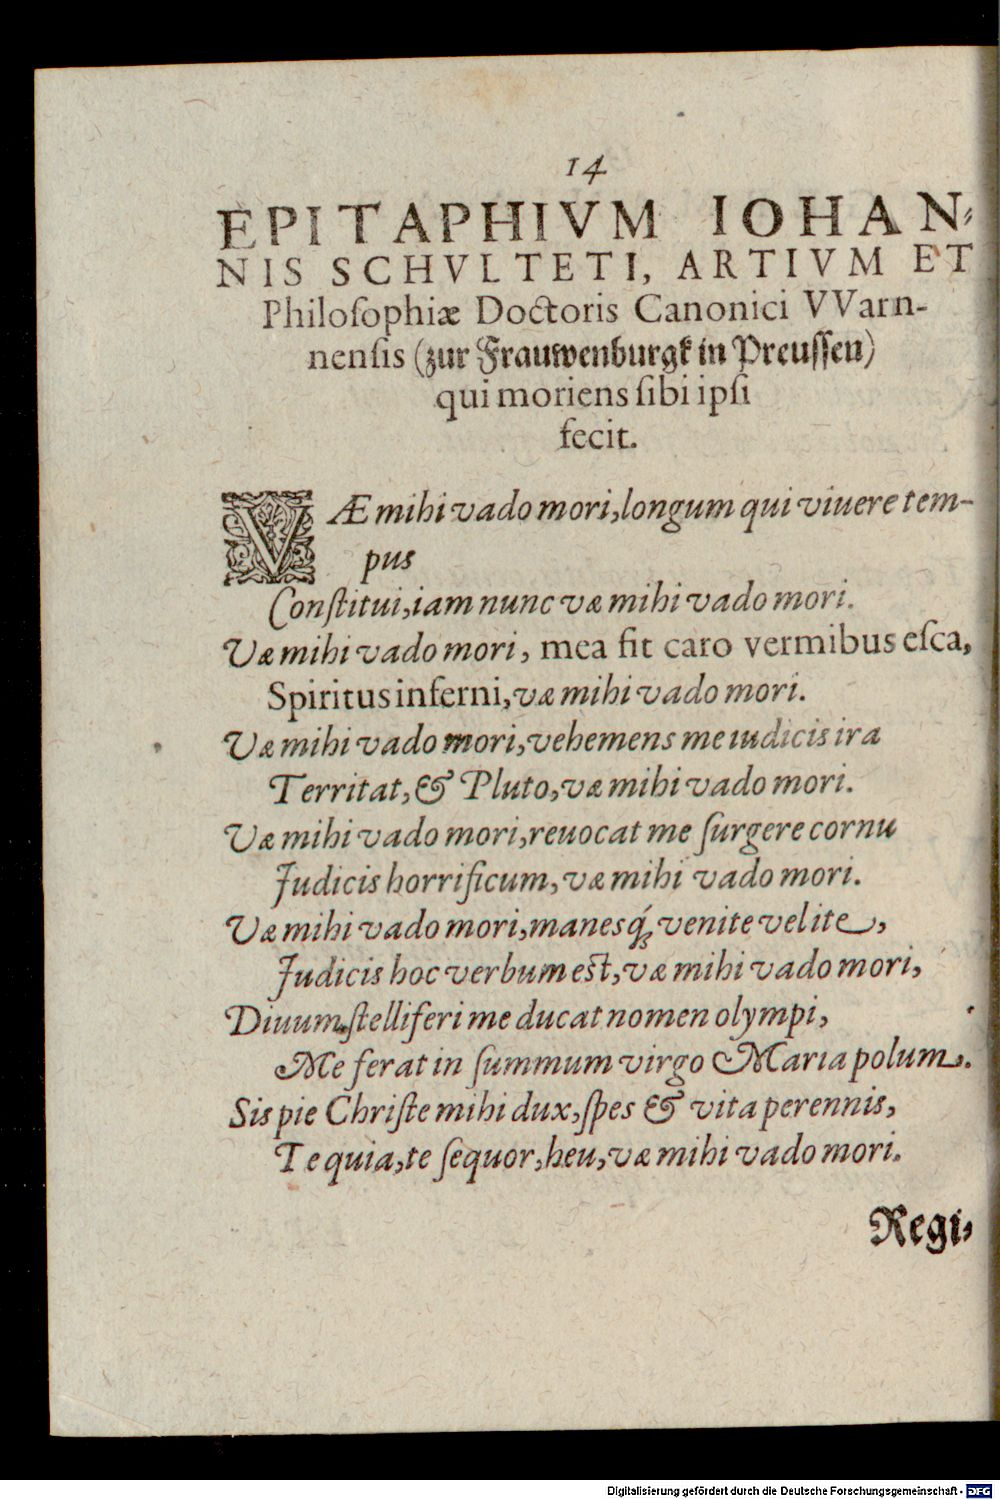 14
EPITAPHIVM IOHAN-
NIS SCHVLTETI, ARTIVM ET
Philoſophiæ Doctoris Canonici VVarn-
nenſis (zur Frauwenburgk in Preuſſen)
qui moriens ſibi ipſi
fecit.
VÆ mihi vado mori, longum qui viuere tem-
pus
Conſtitui, iam nunc væ mihi vado mori.
Væ mihi vado mori, mea fit caro vermibus eſca,
Spiritus inferni, væ mihi vado mori.
Væ mihi vado mori, vehemens me iudicis ira
Territat, & Pluto, væ mihi vado mori.
Væ mihi vado mori, reuocat me ſurgere cornu
Judicis horrificum, væ mihi vado mori.
Væ mihi vado mori, manesq́; venite velite,
Judicis hoc verbum eſt, væ mihi vado mori,
Diuum ſtelliferi me ducat nomen olympi,
Me ferat in ſummum virgo Maria polum.
Sis pie Chriſte mihi dux, ſpes & vita perennis,
Te quia, te ſequor, heu, væ mihi vado mori.
Regi-
Digitalisierung gefördert durch die Deutsche Forschungsgemeinschaft - DFG